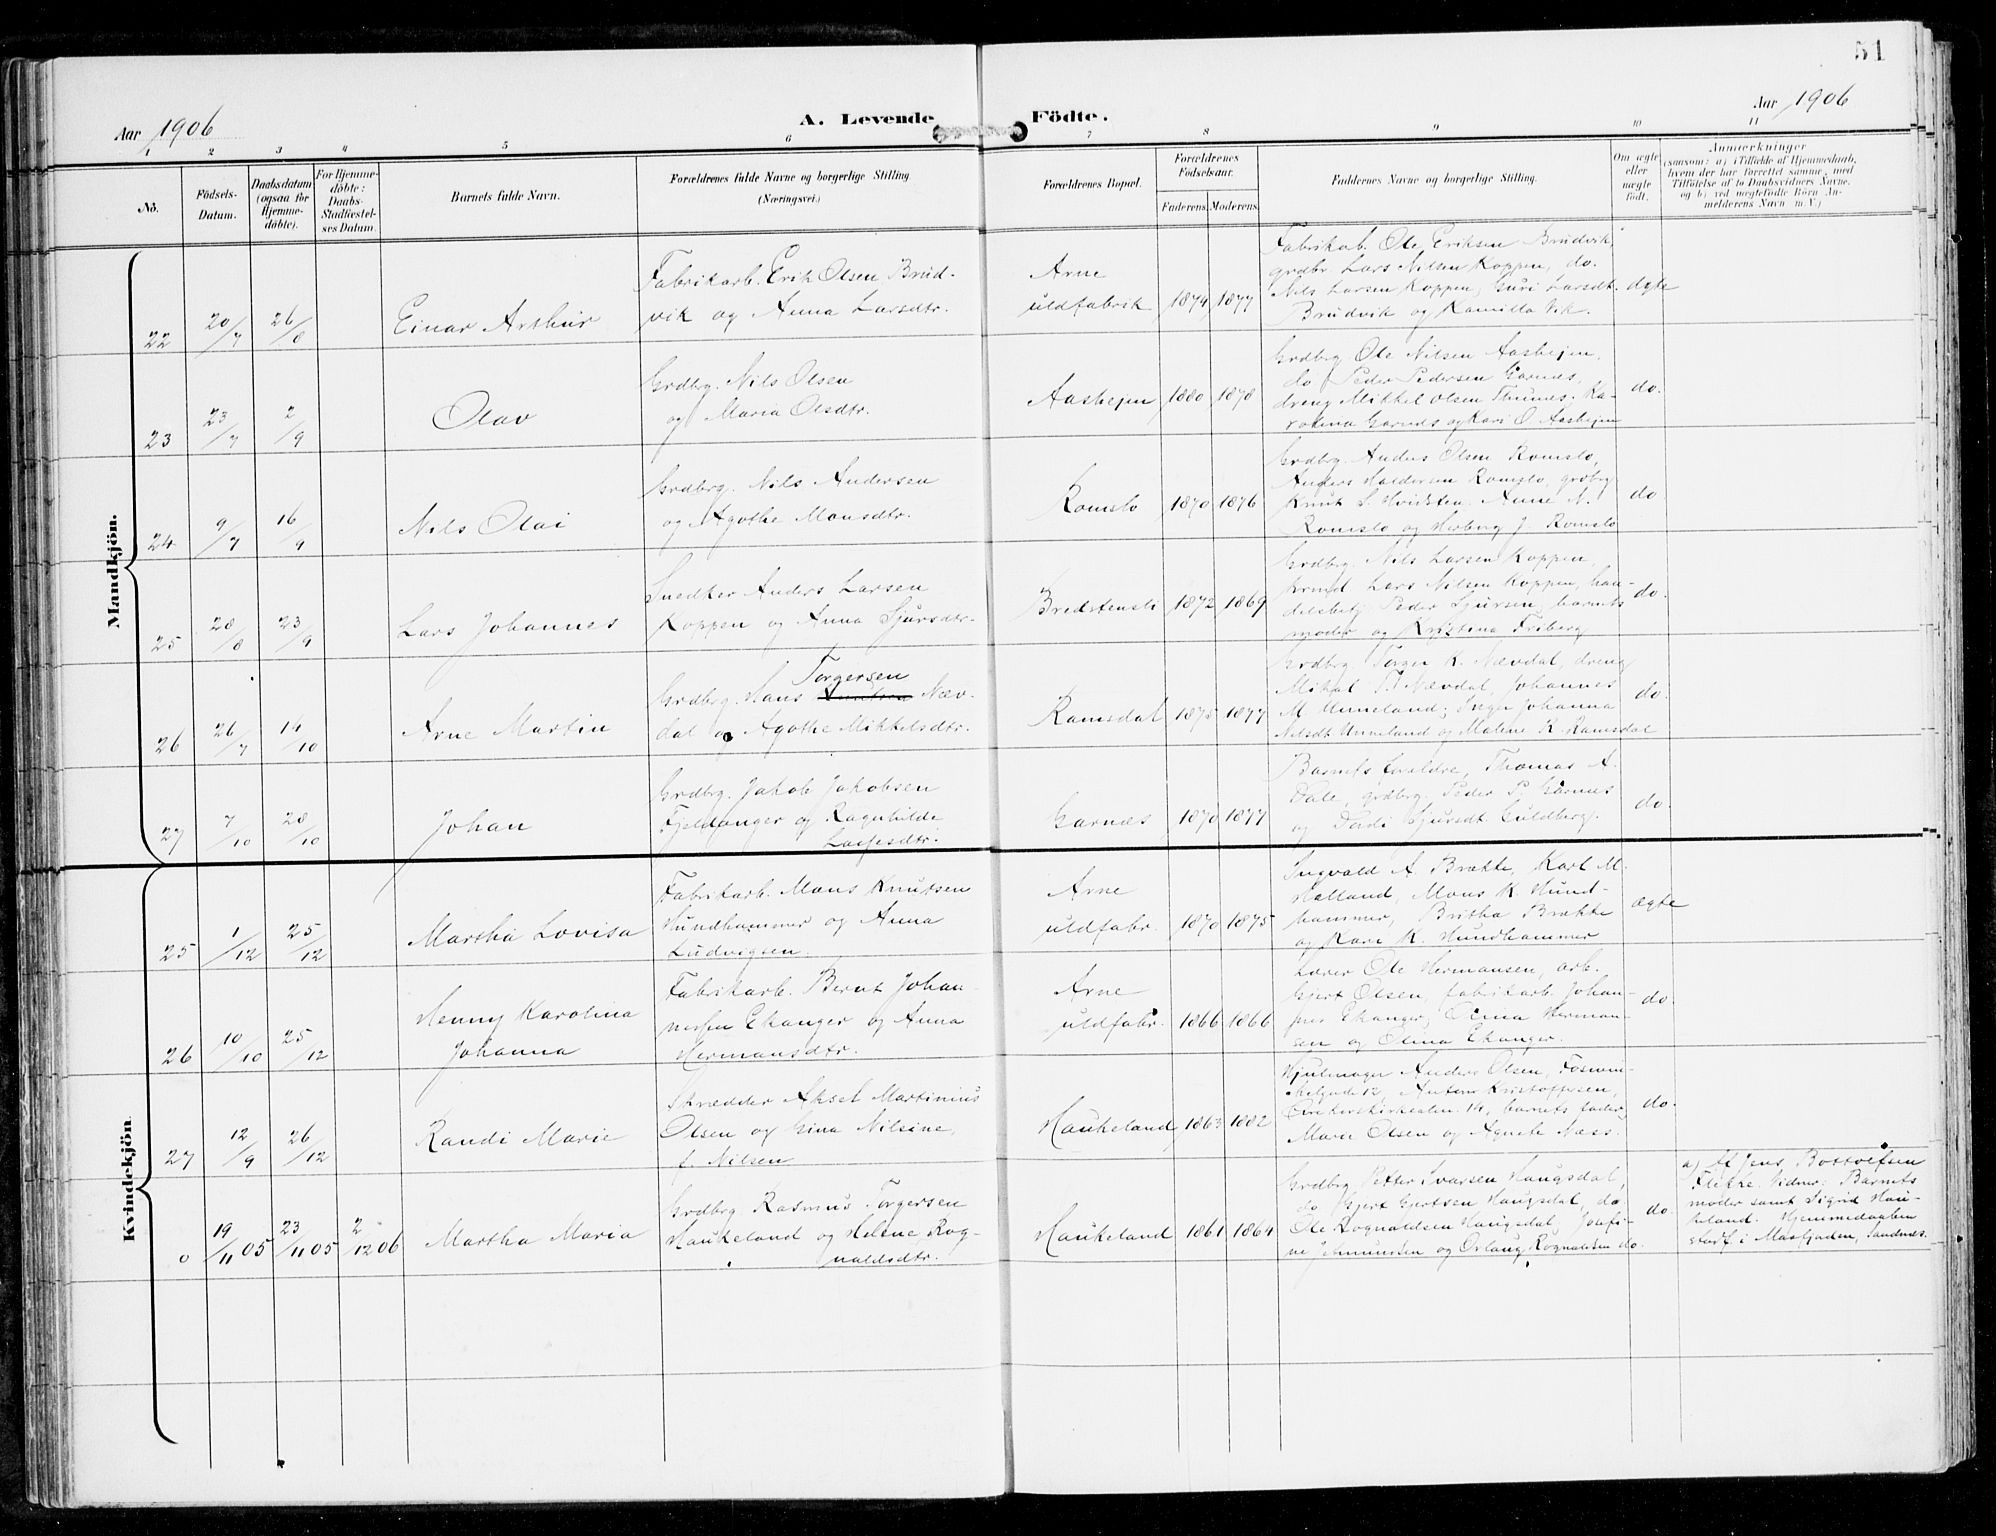 51
Aar 1906
A. Levende Födte.
Aar 1906
1 2 3 4 5 6 7 8 9 10 11
No.
Födsels-
Datum.
Daabsdatum
(ogsaa for
Hjemme-
døbte).
For Hjemme-
døbte:
Daabs-
Stadfæstel-
ses Datum.
Barnets fulde Navn.
Forældrenes fulde Navne og borgerlige Stilling
(Næringsvei.)
Forældrenes Bopæl.
Forældrenes
Fødselsaar.
Faderens. Moderens.
Faddernes Navne og borgerlige Stilling.
Om ægte
eller
uægte
født.
Anmærkninger
(saasom: a) i Tilfælde af Hjemmedaab,
hvem der har forrettet samme, med
Tilføielse af to Daabsvidners Navne,
og b) ved uægtefødte Børn An-
melderens Navn m. V.)
Mandkjön.
22
20/7
26/8
Einar Arthur
Fabrikarb. Erik Olsen Brud-
vik og Anna Larsdtr.
Arne
uldfabrik
1874
1877
Fabrikarb. Ole Eriksen Brudvik,
grdbr. Lars Nilsen Koppen, do.
Nils Larsen Koppen, Guri Larsdt.
Brudvik og Kamilla Vik.
ægte
23
23/7
2/9
Olav
Grdbrg. Nils Olsen
og Maria Olsdtr.
Aashejen
1880
1878
Grdbrg. Ole Nilsen Aashejen,
do Peder Pedersen Garnes,
dreng Mikkel Olsen Thunes, Ka-
rolina Garnes og Kari O. Aashejen
do.
24
9/7
16/9
Nils Olai
Grdbrg. Nils Andersen
og Agothe Monsdtr.
Romslo
1870
1876
Grdbrg. Anders Olsen Romslo,
Anders Haldorsen Romslo, grdbrg
Knut S. Hvidsten, Anne N.
Romslo og Herborg J. Romslo
do
25
28/8
23/9
Lars Johannes
Snedker Anders Larsen
Koppen og Anna Sjursdtr.
Bredstensli
1872
1869
Grdbrg. Nils Larsen Koppen,
Lars Nilsen Koppen, han-
delsbetj. Peder Sjursen, barnets
moder og Kristina Friberg
do.
26
26/7
14/10
Arne Martin
Torgersen
Grdbrg. Hans Næv-
dal og Agothe Mikkelsdtr.
Ramsdal
1875
1877
Grdbrg. Torger K. Nævdal, dreng
Mikal T. Nævdal, Johannes
M. Unneland, Inger Johanna
Nilsdt Unneland og Malene K. Ramsdal
do.
27
7/10
28/10
Johan
Grdbrg. Jakob Jakobsen
Fjeldanger og Ragnhilde
Larsdtr.
Garnæs
1870
1877
Barnets forældre, Thomas A.
Dale, grdbrg. Peder P. Garnes
og Dordi Sjursdt. Guldberg.
do.
Kvindekjön
25
1/12
25/12
Martha Lovisa
Fabrikarb. Mons Knutsen
Hundhammer og Anna
Ludvigsen.
Arne
uldfabr.
1870
1875
Ingvald A. Brække, Karl M.
Helland, Mons K. Hund-
hammer, Britha Brække
og Kari K. Hundhammer
ægte
26
10/10
25/12
Henny Karolina
Johanna
Fabrikarb. Bernt Johan-
nessen Ekanger og Anna
Hermansdtr.
Arne
uldfabr.
1866
1866
Lærer Ole Hermansen, arb.
Gjert Olsen, fabrikarb. Johan-
nes Ekanger, Herman-
sen og Olina Ekanger.
do.
27
12/9
26/12
Randi Marie
Skrædder Aksel Martinius
Olsen og Gina Nilsine,
f. Nilsen
Haukeland
1863
1882
Hjulmager Anders Olsen,
12, Anton Kristoffersen,
14, barnets fader,
Marie Olsen og Agnete Næss.
do.
0
19/11 05
23/11 05
2/12 06
Martha Maria
Grdbrg Rasmus Torgersen
Haukeland og Helene Rog-
naldsdtr.
Haukeland
1861
1864
Grdbrg Petter Ivarsen Haugsdal,
do Gjert Gjertsen Haugsdal, do
Ole Rognaldsen Haugsdal, Josefi-
ne og Orlaug Rognaldsen do.
do.
a) Af Jens Bottolfsen
Flekke. Vidner: Barnets
moder samt Sigrid Hau-
keland. Hjemmedaaben
stadf. i Masfjorden, Sandnes.